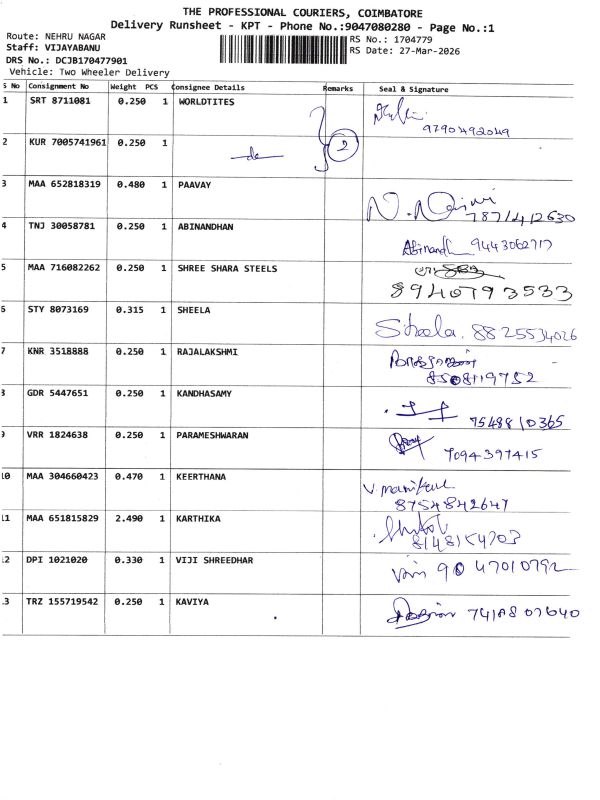 THE PROFESSIONAL COURIERS, COIMBATORE
Delivery Runsheet - KPT - Phone No.:9047080280 - Page No.:1
Route: NEHRU NAGAR
RS No.: 1704779
Staff: VIJAYABANU
RS Date: 27-Mar-2026
DRS No.: DCJB170477901
Vehicle: Two Wheeler Delivery
S No Consignment No Weight PCS Consignee Details Remarks Seal & Signature
1 SRT 8711081 0.250 1 WORLDTITES
9790492049
2 KUR 7005741961 0.250 1 2
3 MAA 652818319 0.480 1 PAAVAY
7871412630
4 TNJ 30058781 0.250 1 ABINANDHAN
Abinandh 9443062717
5 MAA 716082262 0.250 1 SHREE SHARA STEELS
8940793533
6 STY 8073169 0.315 1 SHEELA
Sheela. 8825534026
7 KNR 3518888 0.250 1 RAJALAKSHMI
8508119752
8 GDR 5447651 0.250 1 KANDHASAMY
7548810365
9 VRR 1824638 0.250 1 PARAMESHWARAN
7094397415
10 MAA 304660423 0.470 1 KEERTHANA
8754842647
11 MAA 651815829 2.490 1 KARTHIKA
8148154703
12 DPI 1021020 0.330 1 VIJI SHREEDHAR
13 TRZ 155719542 0.250 1 KAVIYA